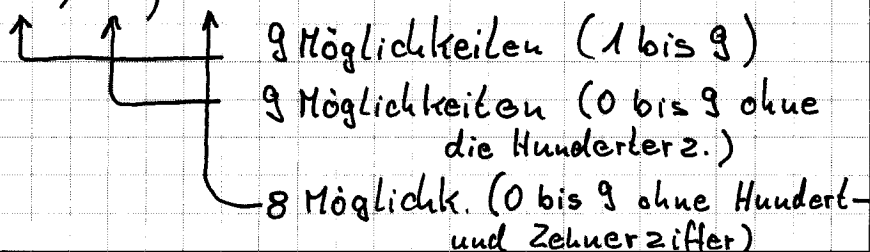 9 Möglichkeiten (1 bis 9)
9 Möglichkeiten (0 bis 9 ohne
die Hunderterz.)
8 Möglichk. (0 bis 9 ohne Hundert-
und Zehnerziffer)